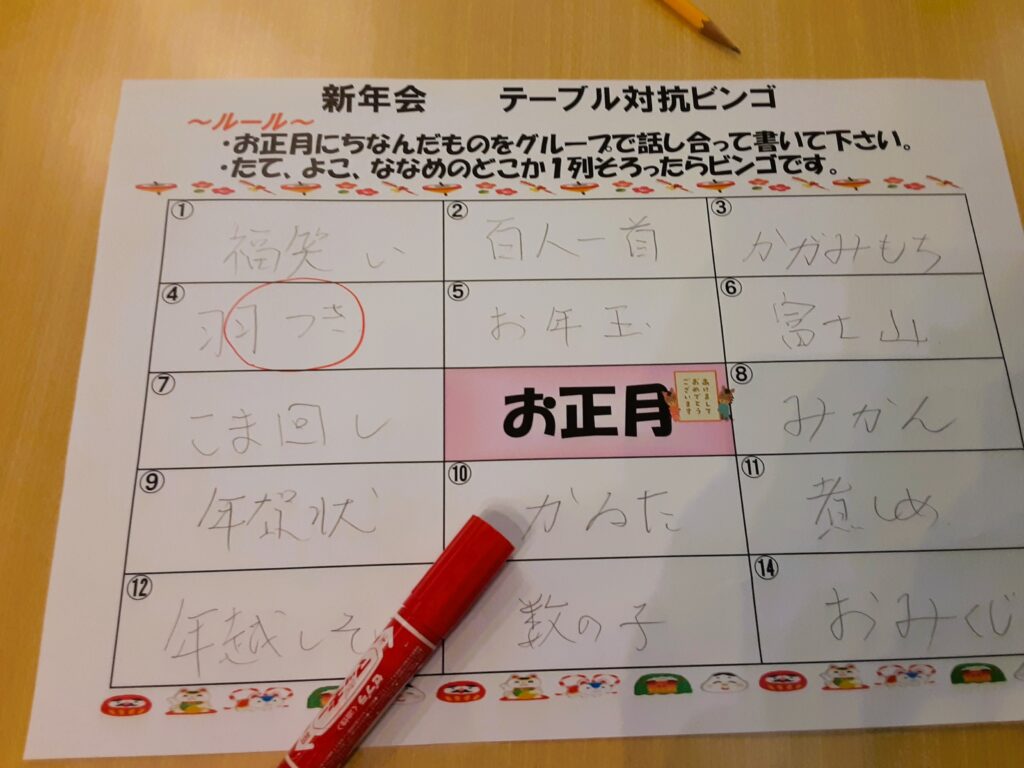 新年会　テーブル対抗ビンゴ
～ルール～
・お正月にちなんだものをグループで話し合って書いて下さい。
・たて、よこ、ななめのどこか１列そろったらビンゴです。
① 福笑い
② 百人一首
③ かがみもち
④ 羽つき
⑤ お年玉
⑥ 富士山
⑦ こま回し
お正月
あけまして
おめでとう
ございます
⑧ みかん
⑨ 年賀状
⑩ かるた
⑪ 煮しめ
⑫ 年越しそ
数の子
⑭ おみくじ
ゼブラ